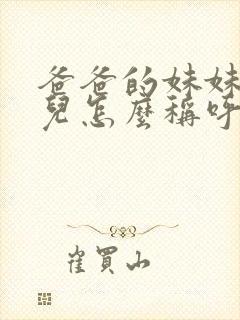 爸爸的妹妹
兒怎麼稱呼
崔買山